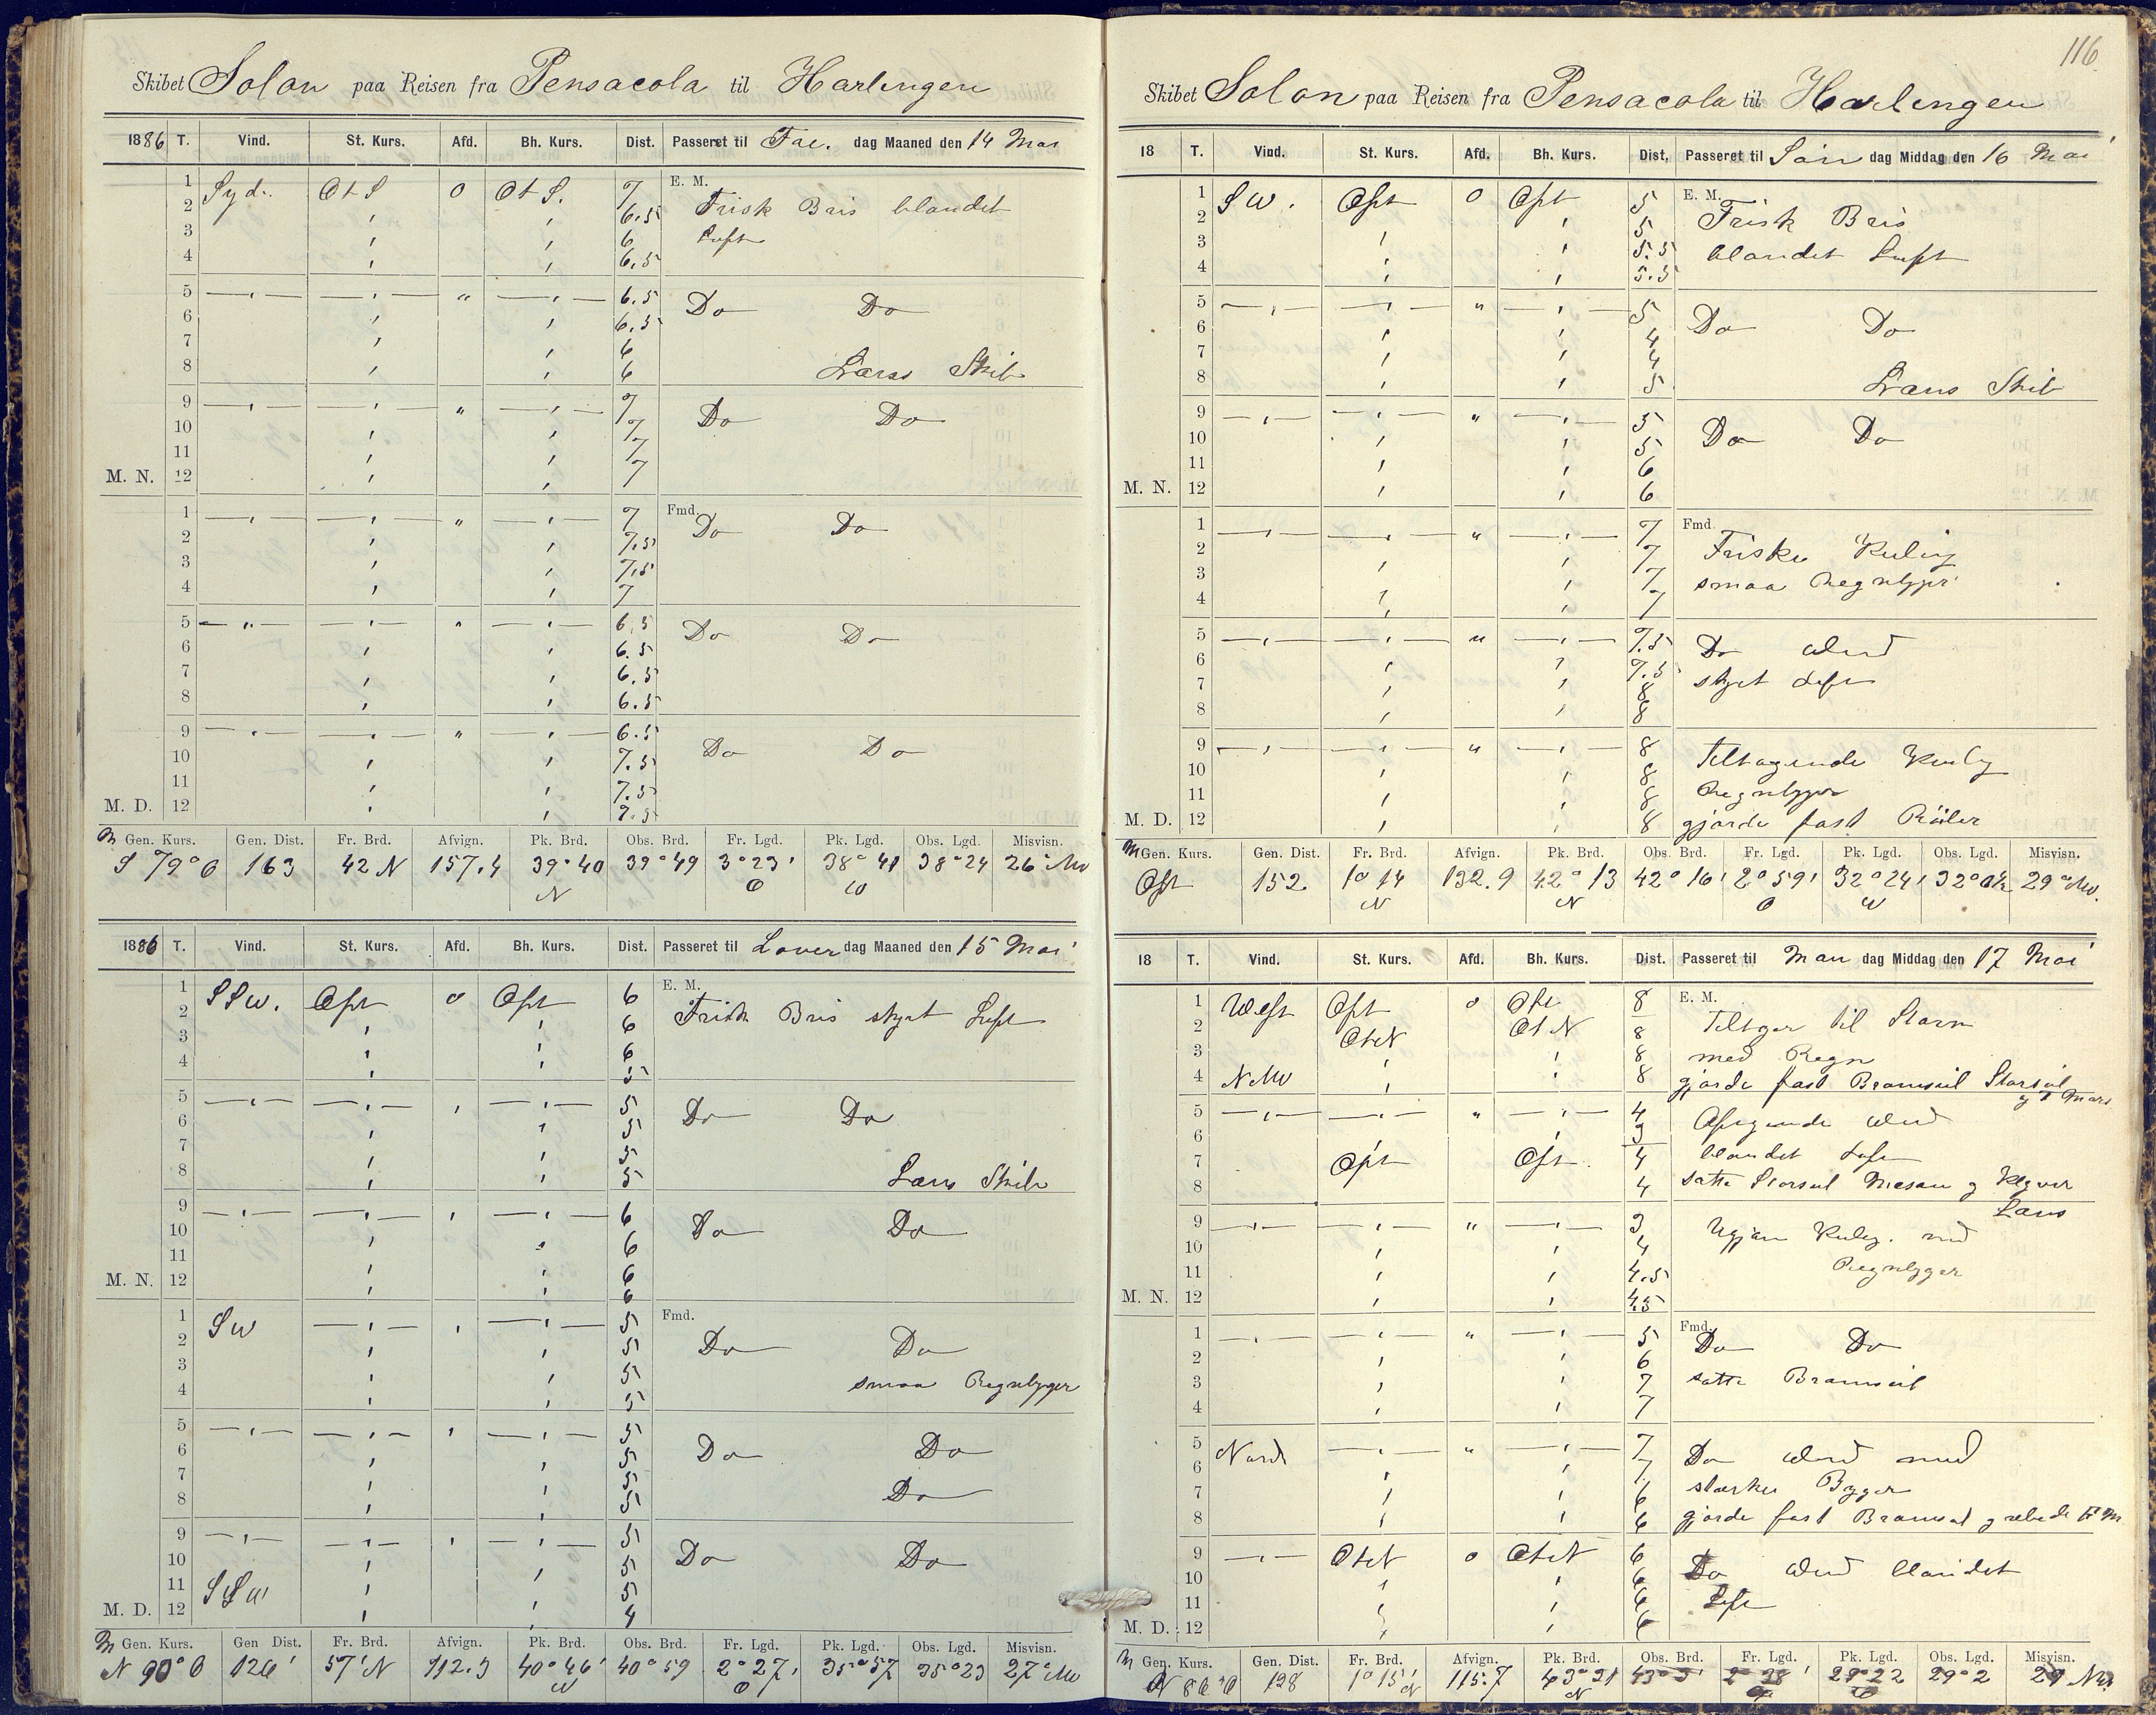 Skibet Solon paa Reisen fra Pensacola til Harlingen
1886 T. Vind. St. Kurs. Afd. Bh. Kurs. Dist. Passeret til Fre. dag Maaned den 14 Mai
1 Syd. OtS 0 OtS. 7 E. M.
2 " " 6.5 Frisk Bris blandet
3 " " 6 Luft
4 " " 6.5
5 — " — — " — " — " — 6.5 Do Do
6 " " 6.5
7 " " 6
8 " " 6 Læns Skib
9 — " — — " — " — " — 7 Do Do
10 " " 7
11 " " 7
M. N. 12 " " 7
1 — " — — " — " — " — 7 Fmd. Do Do
2 " " 7.5
3 " " 7.5
4 " " 7
5 — " — — " — " — " — 6.5 Do Do
6 " " 6.5
7 " " 6.5
8 " " 6.5
9 — " — — " — " — " — 6.5 Do Do
10 " " 7.5
11 " " 7.5
M. D. 12 " " 7.5
M Gen. Kurs. Gen. Dist. Fr. Brd. Afvign. Pk. Brd. Obs. Brd. Fr. Lgd. Pk. Lgd. Obs. Lgd. Misvisn.
S 79° O 163 42 N 157.4 39° 40 N 39° 49 3° 23' O 38° 41 W 38° 24 26° NW
1886 T. Vind. St. Kurs. Afd. Bh. Kurs. Dist. Passeret til Løver dag Maaned den 15 Mai
1 SSW. Ost 0 Ost 6 E. M.
2 " " 6 Frisk Bris skyet Luft
3 " " 6
4 " " 5
5 — " — — " — " — " — 5 Do Do
6 " " 5
7 " " 5
8 " " 5 Læns Skib
9 — " — — " — " — " — 6 Do Do
10 " " 6
11 " " 6
M. N. 12 " " 6
1 SW — " — " — " — 5 Fmd.
2 " " 5 Do Do
3 " " 5 smaa Regnbyger
4 " " 5
5 — " — — " — " — " — 5 Do Do
6 " " 5
7 " " 5 Do
8 " " 5
9 — " — — " — " — " — 5 Do Do
10 " " 5
11 SSW " " 5
M. D. 12 " " 4
M Gen. Kurs. Gen Dist. Fr. Brd. Afvign. Pk. Brd. Obs. Brd. Fr. Lgd. Pk. Lgd. Obs. Lgd. Misvisn.
N 90° O 126' 57' N 112.3 40° 46' N 40° 59 2° 27' O 35° 57 35° 23 27° NW
116
Skibet Solon paa Reisen fra Pensacola til Harlingen
18 T. Vind. St. Kurs. Afd. Bh. Kurs. Dist. Passeret til Søn dag Middag den 16 Mai
1 SW. Ost 0 Ost 5 E. M.
2 " " 5 Frisk Bris
3 " " 5.5 blandet Luft
4 " " 5.5
5 — " — — " — " — " — 5 Do Do
6 " " 4
7 " " 4
8 " " 5 Læns Skib
9 — " — — " — " — " — 5 Do Do
10 " " 5
11 " " 6
M. N. 12 " " 6
1 — " — — " — " — " — 7 Fmd.
2 " " 7 Friske Kuling
3 " " 7 smaa Regnbyger
4 " " 7
5 — " — — " — " — " — 7.5 Do Vind
6 " " 7.5 skyet Luft
7 " " 8
8 " " 8
9 — " — — " — " — " — 8 Tiltagende Kuling
10 " " 8
11 " " 8 Regnbyger
M. D. 12 " " 8 gjorde fast Røiler
M Gen. Kurs. Gen. Dist. Fr. Brd. Afvign. Pk. Brd. Obs. Brd. Fr. Lgd. Pk. Lgd. Obs. Lgd. Misvisn.
Ost 152 1° 14 N 132.9 42° 13 N 42° 16' 2° 59' O 32° 24' W 29° NW.
18 T. Vind. St. Kurs. Afd. Bh. Kurs. Dist. Passeret til Man dag Middag den 17 Mai
1 West Ost 0 Ost 8 E. M.
2 OtN OtN 8 Tiltager til Storm
3 " " 8 med Regn
4 NNW " " 8 gjorde fast Bramseil Storseil
og Mærs
5 — " — — " — " — " — 4 Aftagende Vind
6 " " 3
7 Ost Ost 4 blandet Luft
8 4 satte Storseil Mesan og Klyver
Læns
9 — " — — " — " — " — 3 Ugjævn Kuling. med
10 " " 4
11 " " 4.5 Regnbyger
M. N. 12 " " 4.5
1 — " — — " — " — " — 5 Fmd. Do Do
2 " " 6
3 " " 7 satte Bramseil
4 " " 7
5 Nord — " — " — " — 7 Do Vind med
6 " " 7
7 " " 6 stærke Byger
8 " " 6 gjorde fast Bramseil og rebede
9 — " — OtN 0 OtN 6 Do Vind blandet
10 " " 6
11 " " 6 Luft
M. D. 12 " " 6
M Gen. Kurs. Gen. Dist. Fr. Brd. Afvign. Pk. Brd. Obs. Brd. Fr. Lgd. Pk. Lgd. Obs. Lgd. Misvisn.
N 86° O 138 1° 15' N 115.7 43° 31 N 29° 22 29° 2 29 NW.